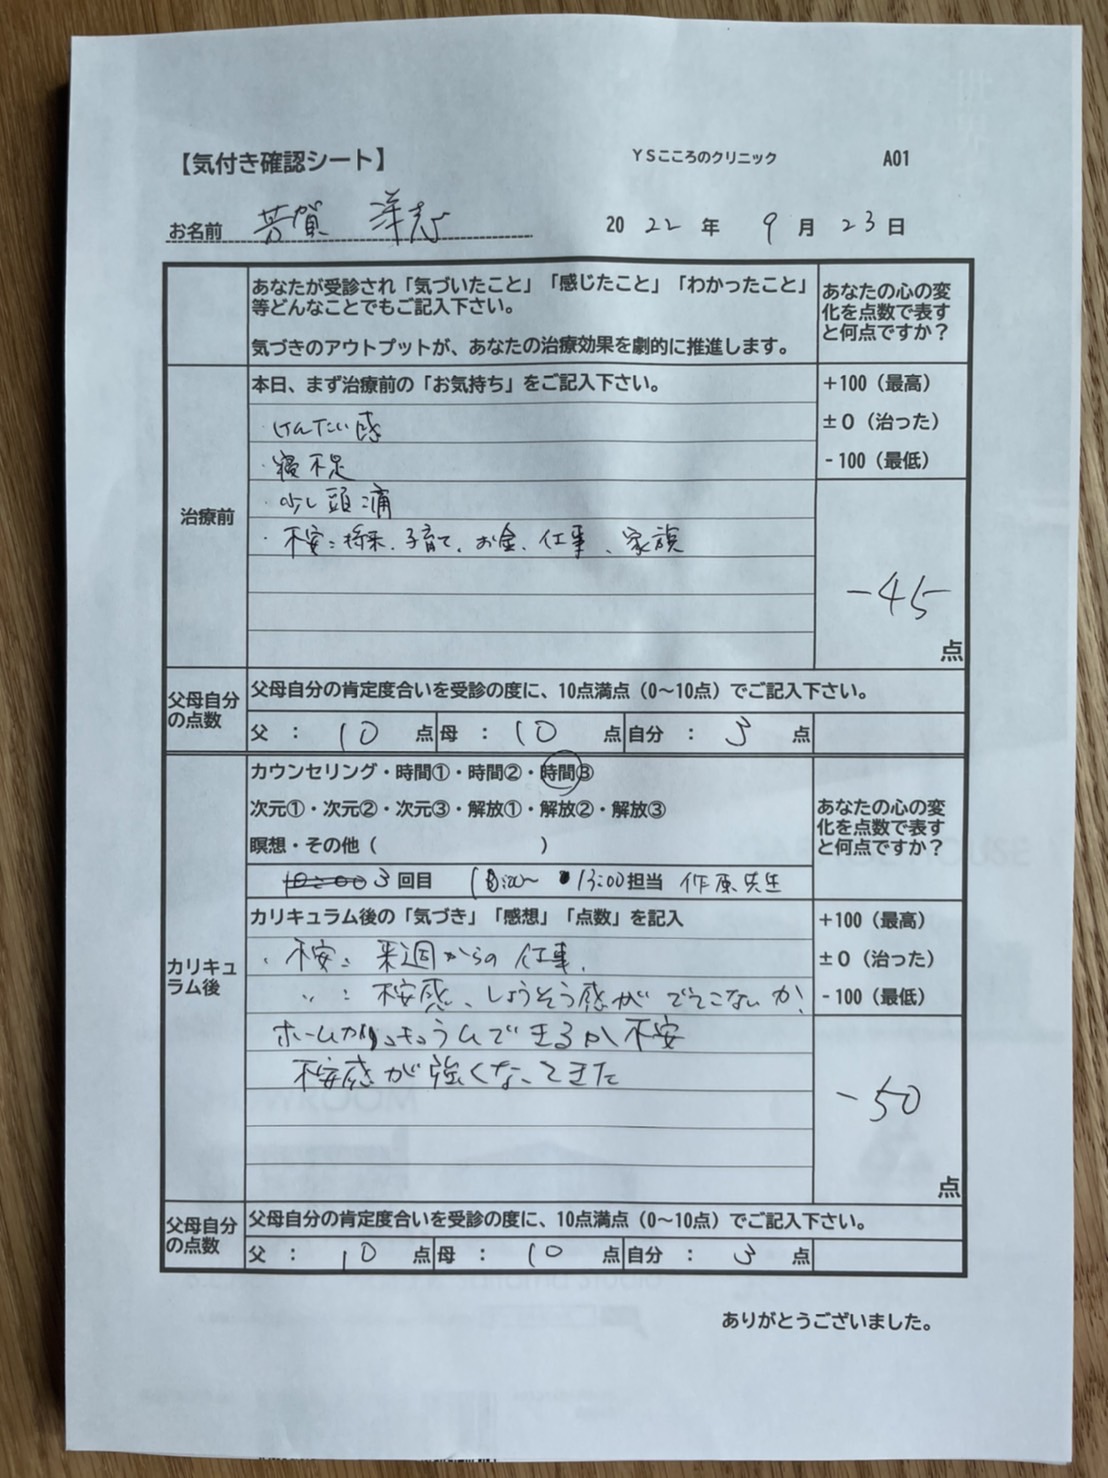 【気付き確認シート】 YSこころのクリニック A01
お名前 芳賀 洋志 2022年 9月 23日
あなたが受診され「気づいたこと」「感じたこと」「わかったこと」
等どんなことでもご記入下さい。
気づきのアウトプットが、あなたの治療効果を劇的に推進します。
あなたの心の変
化を点数で表す
と何点ですか？
治療前
本日、まず治療前の「お気持ち」をご記入下さい。
・けんたい感
・寝不足
・少し頭痛
・不安：将来、子育て、お金、仕事、家族
+100（最高）
±0（治った）
-100（最低）
-45
点
父母自分
の点数
父母自分の肯定度合いを受診の度に、10点満点（0～10点）でご記入下さい。
父 ： 10 点 母 ： 10 点 自分 ： 3 点
カリキュ
ラム後
カウンセリング・時間①・時間②・時間③
次元①・次元②・次元③・解放①・解放②・解放③
瞑想・その他（ ）
3回目 〜 13:00 担当 作原先生
あなたの心の変
化を点数で表す
と何点ですか？
カリキュラム後の「気づき」「感想」「点数」を記入
・不安：来週からの仕事、
〃：不安感、しょうそう感がでてこないか、
ホームカリキュラムできるか不安
不安感が強くなってきた
+100（最高）
±0（治った）
-100（最低）
-50
点
父母自分
の点数
父母自分の肯定度合いを受診の度に、10点満点（0～10点）でご記入下さい。
父 ： 10 点 母 ： 10 点 自分 ： 3 点
ありがとうございました。